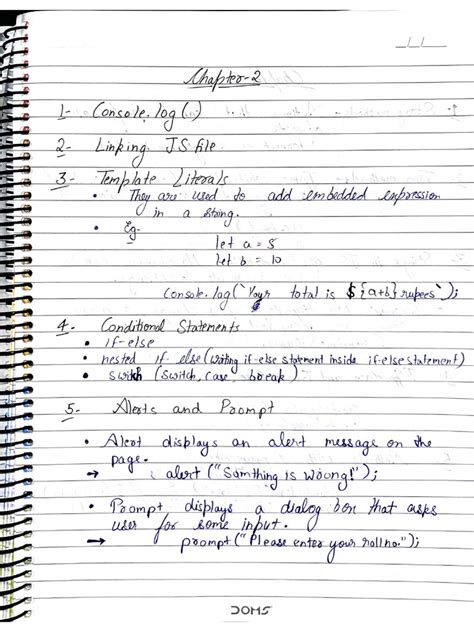 Chapter-2
1- Console.log(.)
2- Linking JS file
3- Template Literals
• They are used to add embedded expression
in a string.
• Eg-
let a = 5
let b = 10
console.log(`Your total is ${a+b} rupees`);
4- Conditional Statements
• if-else
• nested if else (writing if-else statement inside if-else statement)
• switch (switch, case, break)
5- Alerts and Prompt
• Alert displays an alert message on the
page.
→ alert ("Somthing is Wrong!");
• Prompt displays a dialog box that asks
user for some input.
→ prompt ("Please enter your rollno.");
DOMS